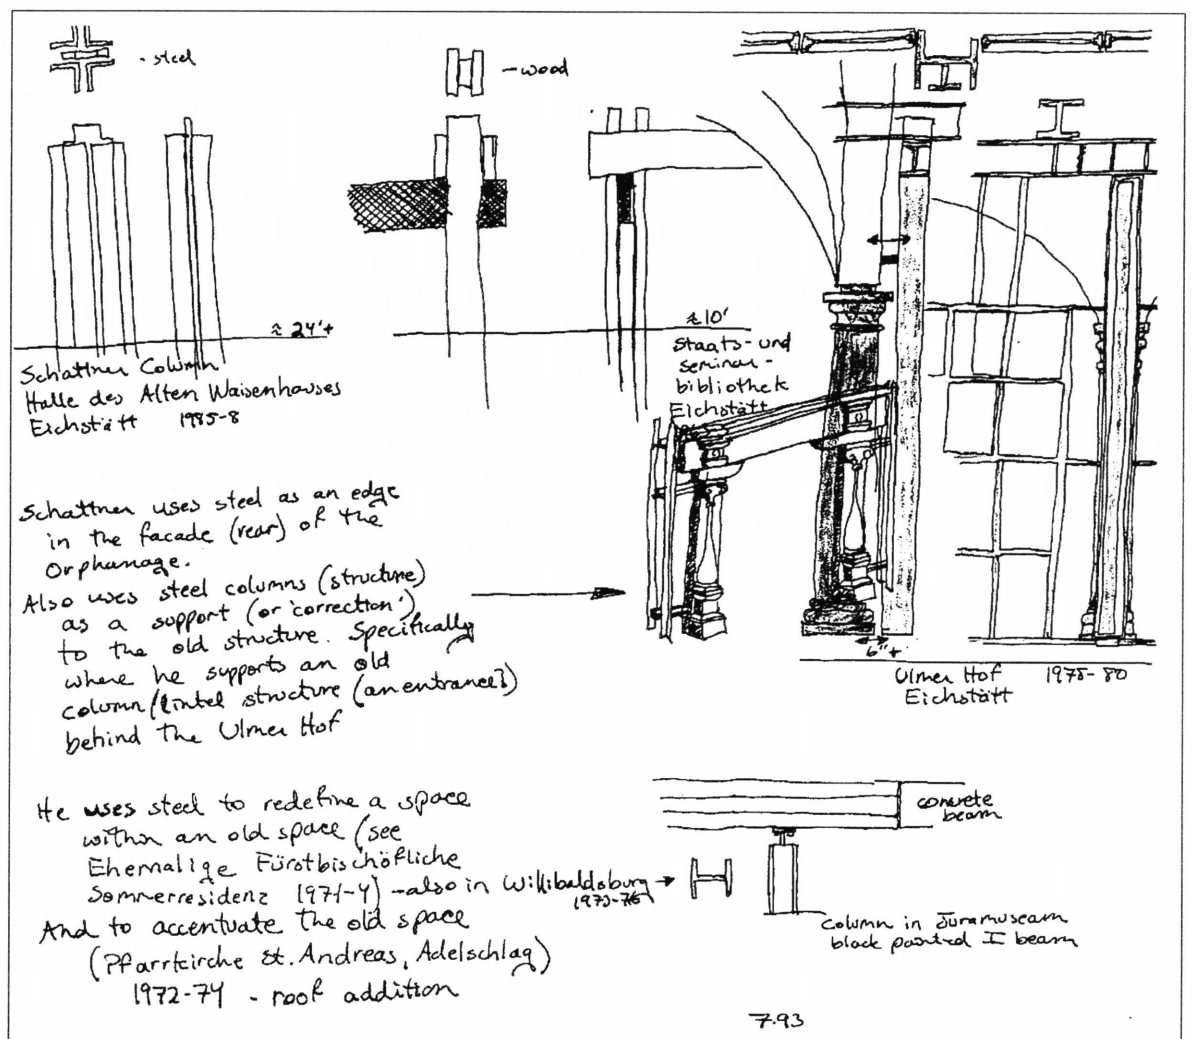 - steel
- wood
≈ 24'+
Schattner Column
Halle des Alten Waisenhauses
Eichstätt 1985-8
≈10'
Staats- und
seminar-
bibliothek
Eichstätt
Schattner uses steel as an edge
in the facade (rear) of the
Orphanage.
Also uses steel columns (structure)
as a support (or 'correction')
to the old structure. Specifically
where he supports an old
column/lintel structure (an entrance?)
behind the Ulmer Hof
6"+
Ulmer Hof 1978-80
Eichstätt
He uses steel to redefine a space
within an old space (see
Ehemalige Fürstbischöfliche
Sommerresidenz 1971-4) - also in Willibaldsburg
1973-76
And to accentuate the old space
(Pfarrkirche St. Andreas, Adelschlag)
1972-74 - roof addition
concrete
beam
column in Juramuseam
black painted I beam
7.93